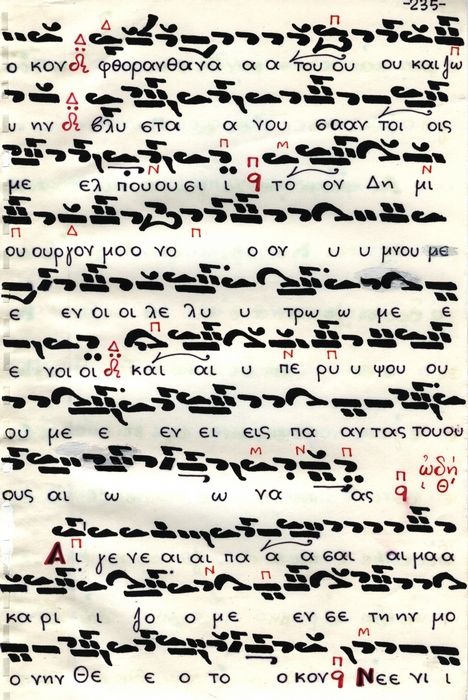 -235-
ο κον φθορανθανα α α του ου ου και ζω
υ ην βλυ στα α νου σααν τοι οις
με ελ πουου σι ι το ον Δη μι
ου ουργον μο ο νο ο ον υ υ μνου με
ε εν οι οι λε λυ υ τρω ω με ε
ε νοι οι και αι υ πε ρυ υ ψου ου
ου με ε εν ει εις πα αν τας τουου
ους αι ω ω να ας ᾠδή θ'
Αι γε νε αι αι πα α α σαι αι μα α
κα ρι ι ζο ο με εν σε τη ην μο
ο νην Θε ε ο το ο κον Νεε νι ι